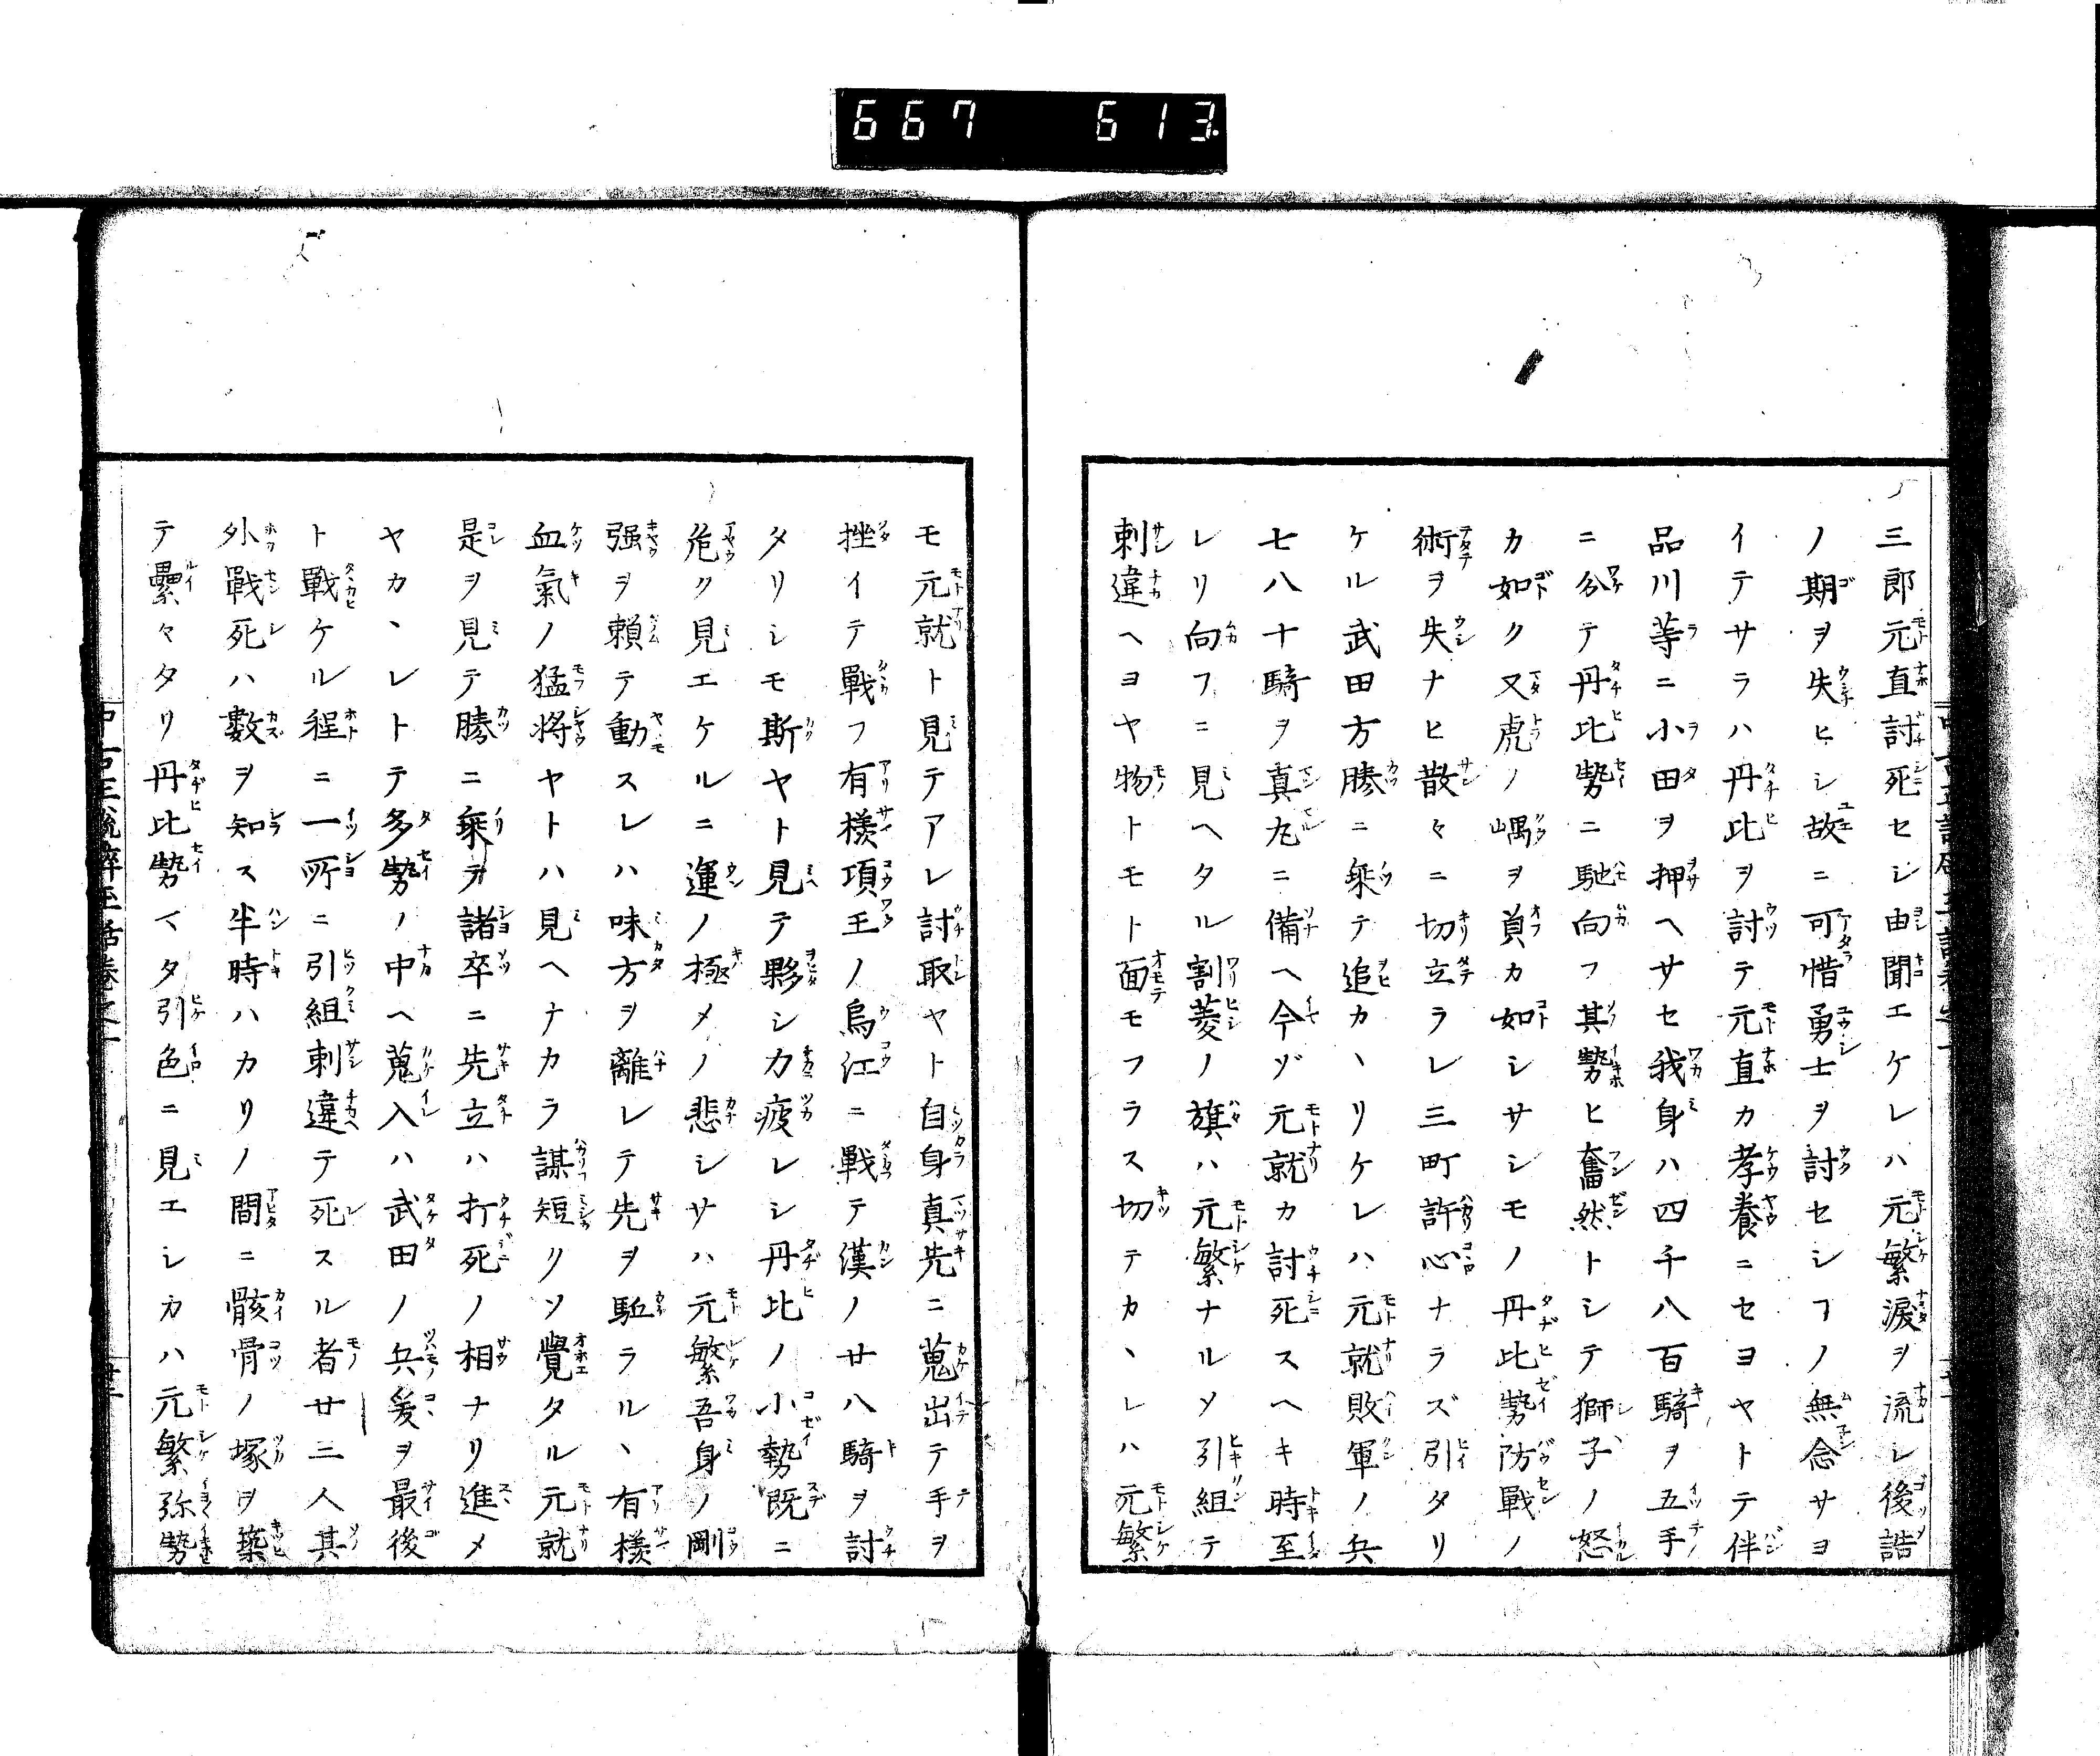 667 613
三郎元直討死セシ由聞エケレハ元繁涙ヲ流シ後詰
ノ期ヲ失ヒシ故ニ可惜勇士ヲ討セシヿノ無念サヨ
イテサラハ丹比ヲ討テ元直カ孝養ニセヨヤトテ伴
品川等ニ小田ヲ押ヘサセ我身ハ四千八百騎ヲ五手
ニ分テ丹比勢ニ馳向フ其勢ヒ奮然トシテ獅子ノ怒
カ如ク又虎ノ嵎ヲ負カ如シサシモノ丹比勢防戰ノ
術ヲ失ナヒ散々ニ切立ラレ三町許心ナラズ引タリ
ケル武田方勝ニ乗テ追カヽリケレハ元就敗軍ノ兵
七八十騎ヲ真丸ニ備ヘ今ゾ元就カ討死スヘキ時至
レリ向フニ見ヘタル割菱ノ旗ハ元繁ナルソ引組テ
刺違ヘヨヤ物トモト面モフラス切テカヽレハ元繁
モ元就ト見テアレ討取ヤト自身真先ニ蒐出テ手ヲ
挫イテ戰フ有様項王ノ烏江ニ戰テ漢ノ廿八騎ヲ討
タリシモ斯ヤト見テ夥シカ疲レシ丹比ノ小勢既ニ
危ク見エケルニ運ノ極メノ悲シサハ元繁吾身ノ剛
强ヲ賴テ動スレハ味方ヲ離レテ先ヲ駈ラルヽ有様
血氣ノ猛将ヤトハ見ヘナカラ謀短リソ覺タル元就
是ヲ見テ勝ニ乗テ諸卒ニ先立ハ打死ノ相ナリ進メ
ヤカヽレトテ多勢ノ中ヘ蒐入ハ武田ノ兵爰ヲ最後
ト戰ケル程ニ一所ニ引組刺違テ死スル者廿二人其
外戰死ハ數ヲ知ス半時ハカリノ間ニ骸骨ノ塚ヲ築
テ纍々タリ丹比勢マタ引色ニ見エシカハ元繁弥勢